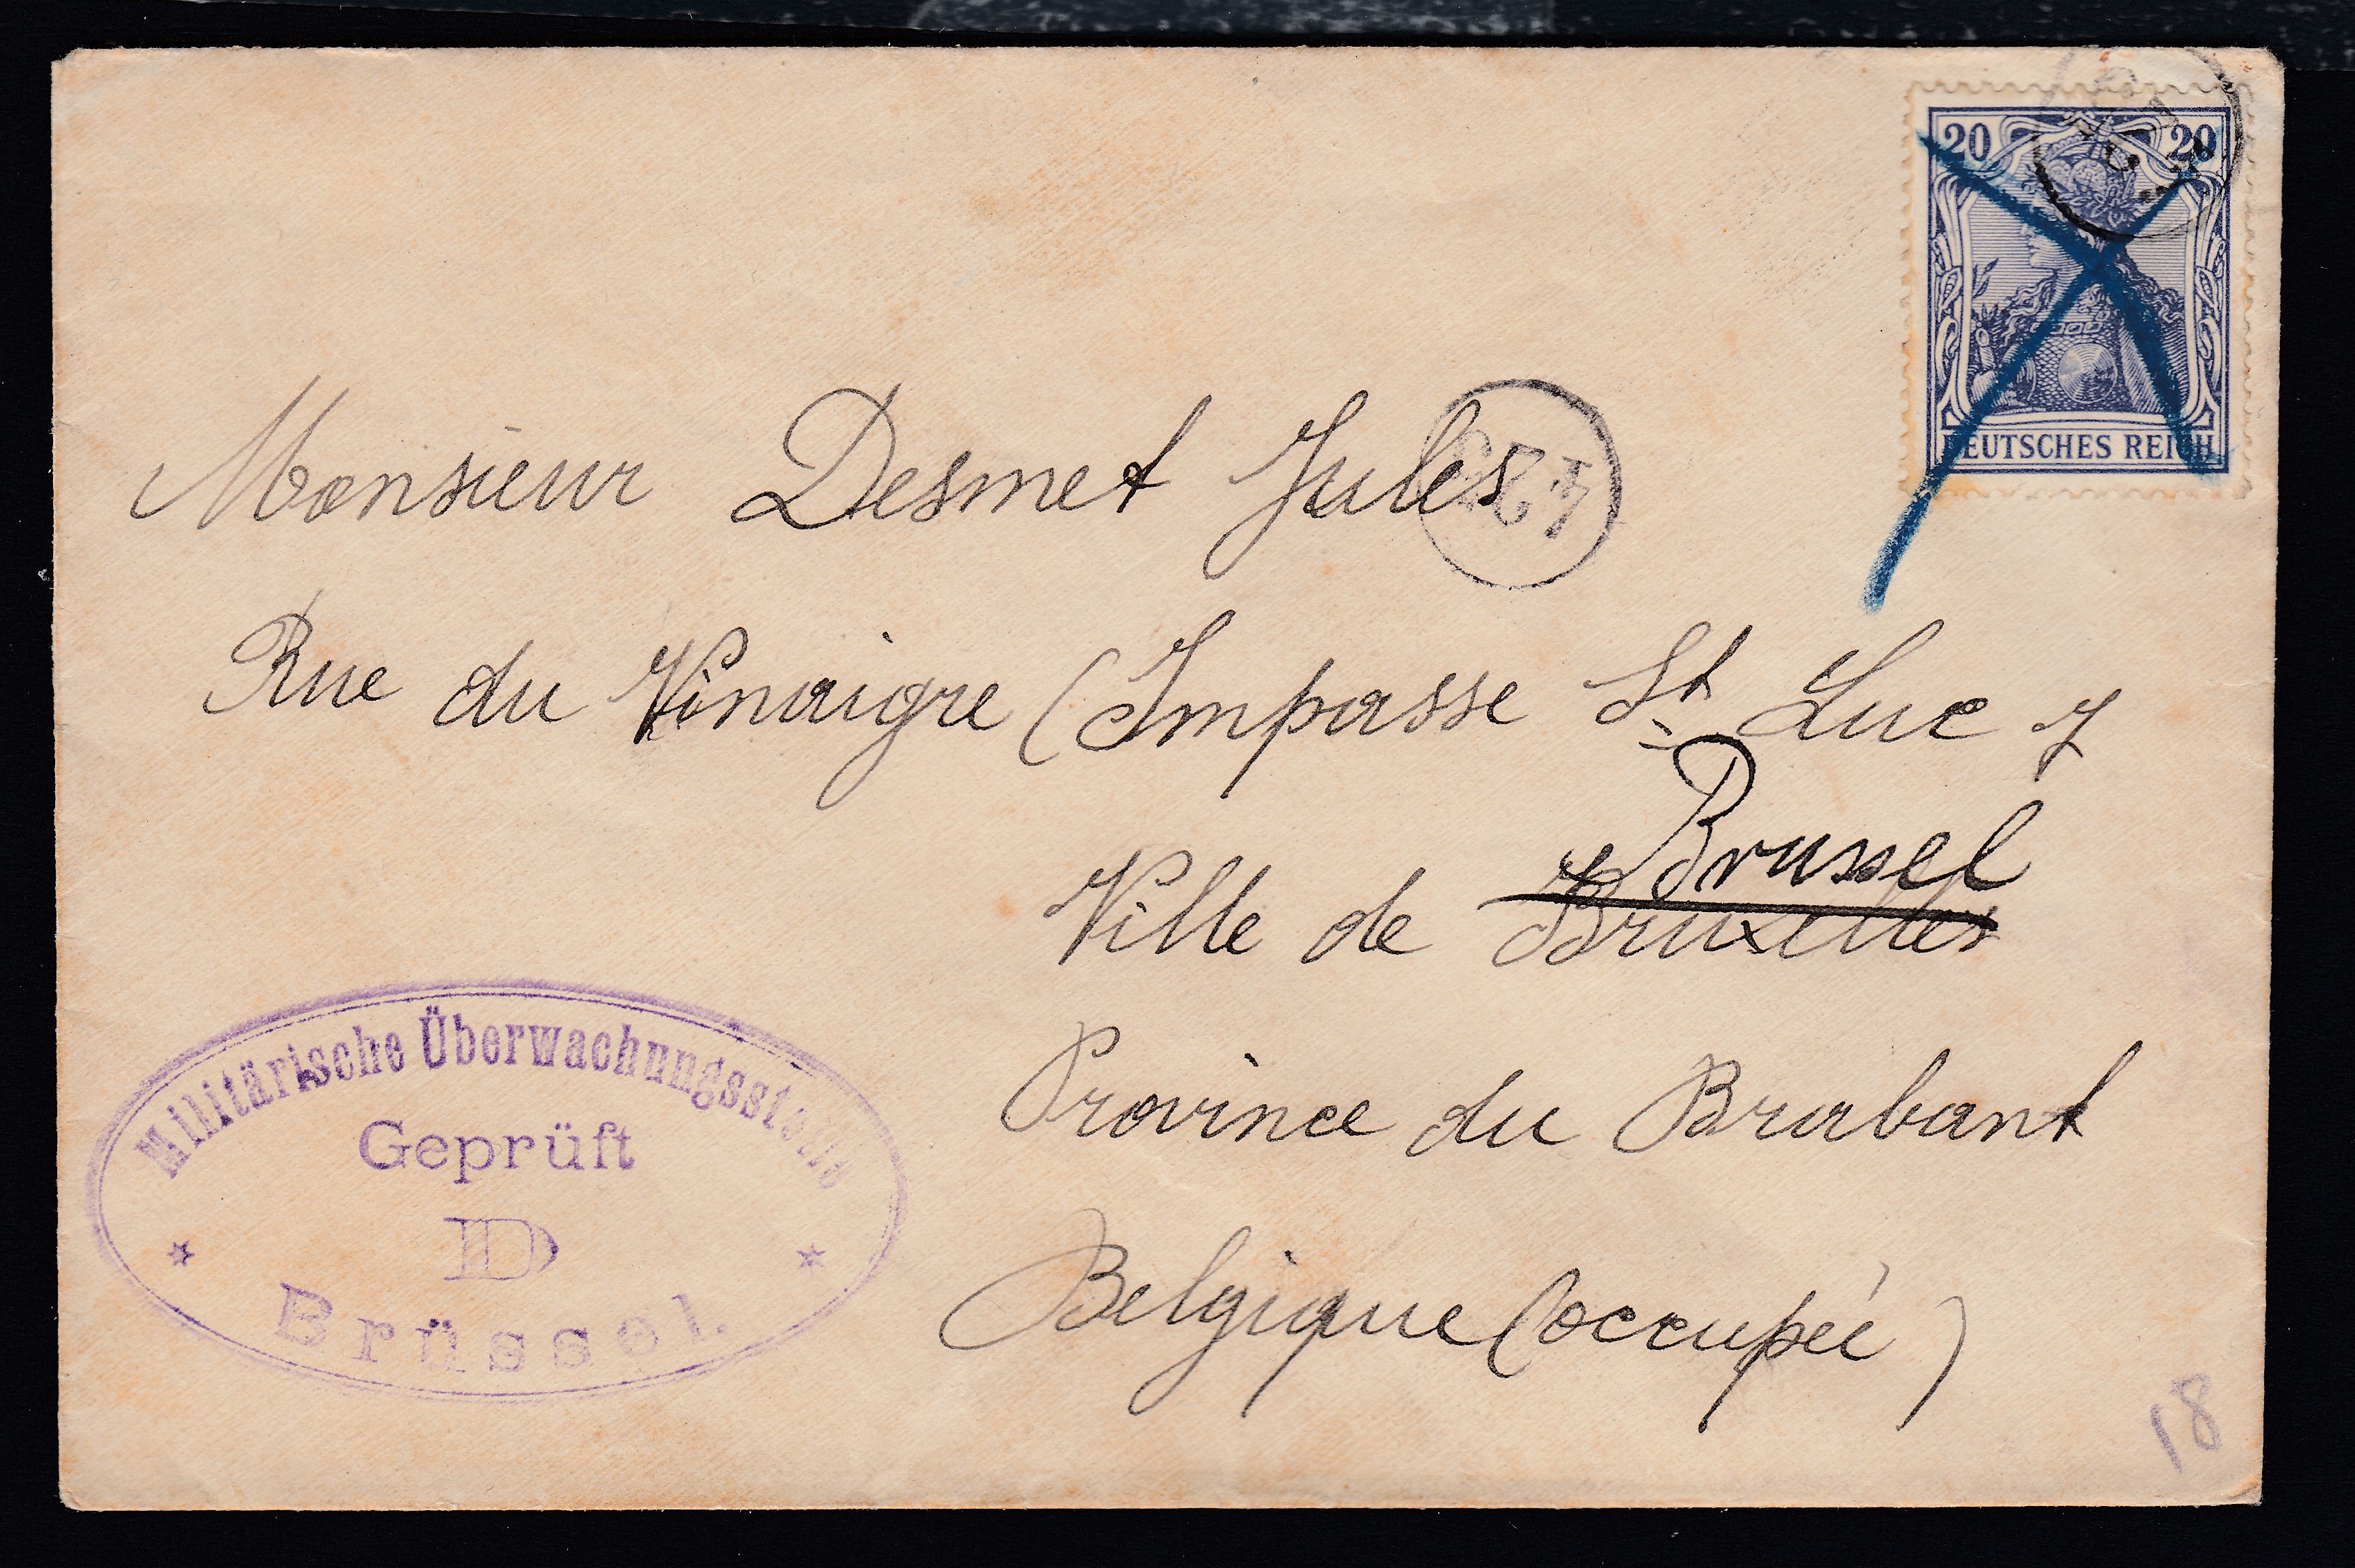 20 20
DEUTSCHES REICH
Monsieur Desmet Jules
Rue du Vinaigre (Impasse St Luc 7
Brussel
Ville de Bruxelles
Province du Brabant
Belgique (occupée)
Militärische Überwachungsstelle
Geprüft
D
Brüssel.
18